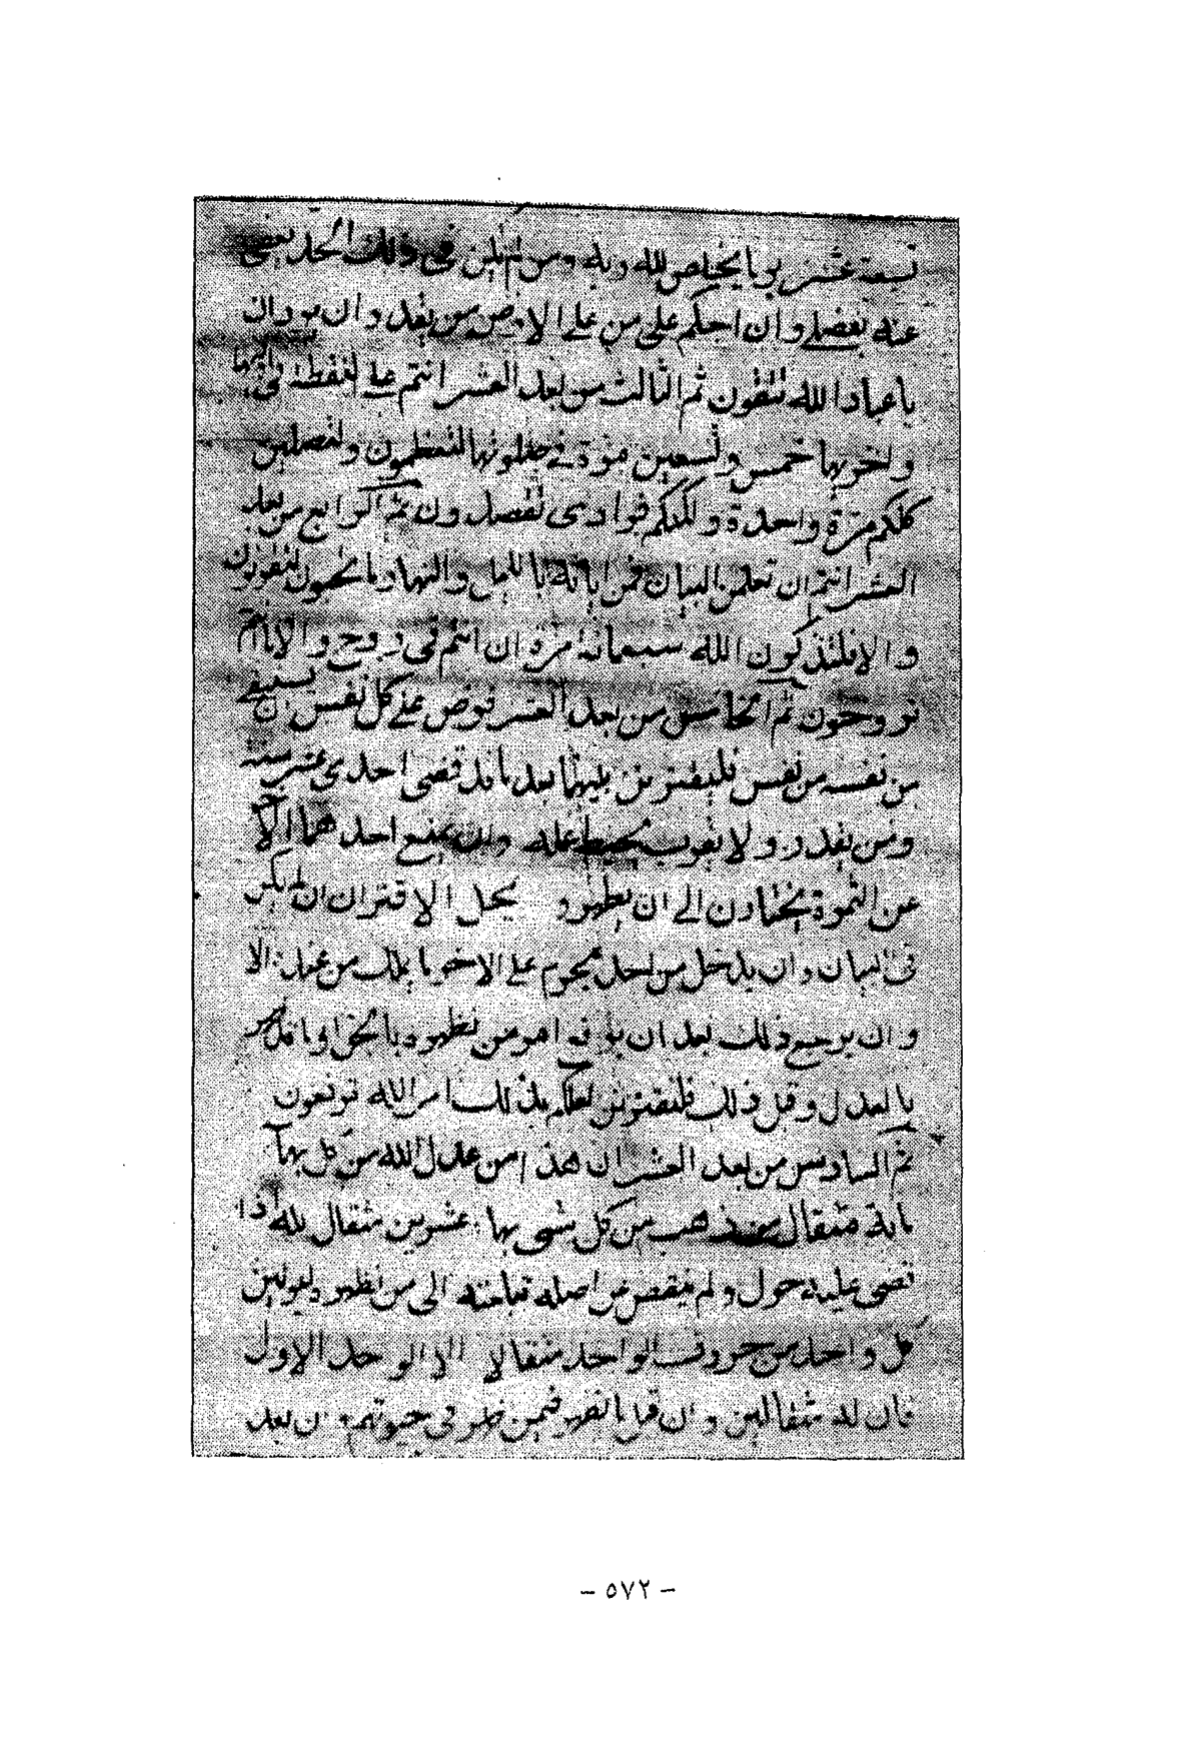 تسعة عشر يوما يخلص لله ربه ومن لم يكن في ذلك الحد يعفى
عنه بفضلى وان احكم على من على الارض من بعد وان
يا عباد الله تتقون ثم الثالث من بعد العشر انتم على النقطة في
واخريها خمس وتسعين مرة
كلكم مرة واحدة ولكنكم فرادى تقصدون ثم الرابع من بعد
العشر انتم ان تعلمن البيان فمن اياته بالليل والنهار ما تحبون لتقرئون
والا فلتذكرون الله سبعمائة مرة ان انتم في روح والا ما انتم
تروحون ثم الخامس من بعد العشر فرض على كل نفس ان يستبقى
من نفسه من نفس فليقترنن بينهما بعد ما قد قضى احدى عشر سنة
ومن يقدر ولا يقرب يحبط عمله وان يمنع احدهما الآخر
عن الثمرة يختارن الى ان يظهر و يحل الاقتران ان لم يكن
في البيان وان يدخل من احد يحرم على الاخر ما يملك من عنده الا
وان يرجع ذلك بعد ان يرفع امر من نظهره بالحق او ما قد ظهر
بالعدل وقبل ذلك فلتقترنن لعلكم بذلك امر الله ترفعون
ثم السادس من بعد العشر ان هذا من عدل الله من كل بهآء
مائة مثقال ذهب من كل شىء بهائه عشرين مثقال لله اذا
تقضى عليه حول ولم ينقص عن اصله تبلغنه الى من نظهره ليوتين
كل واحد من حروف الواحد مثقالا الا الواحد الاول
فان له مثقالين وان فيمن ظهر في حيوتهم وان بعد
- ٥٧٢ -